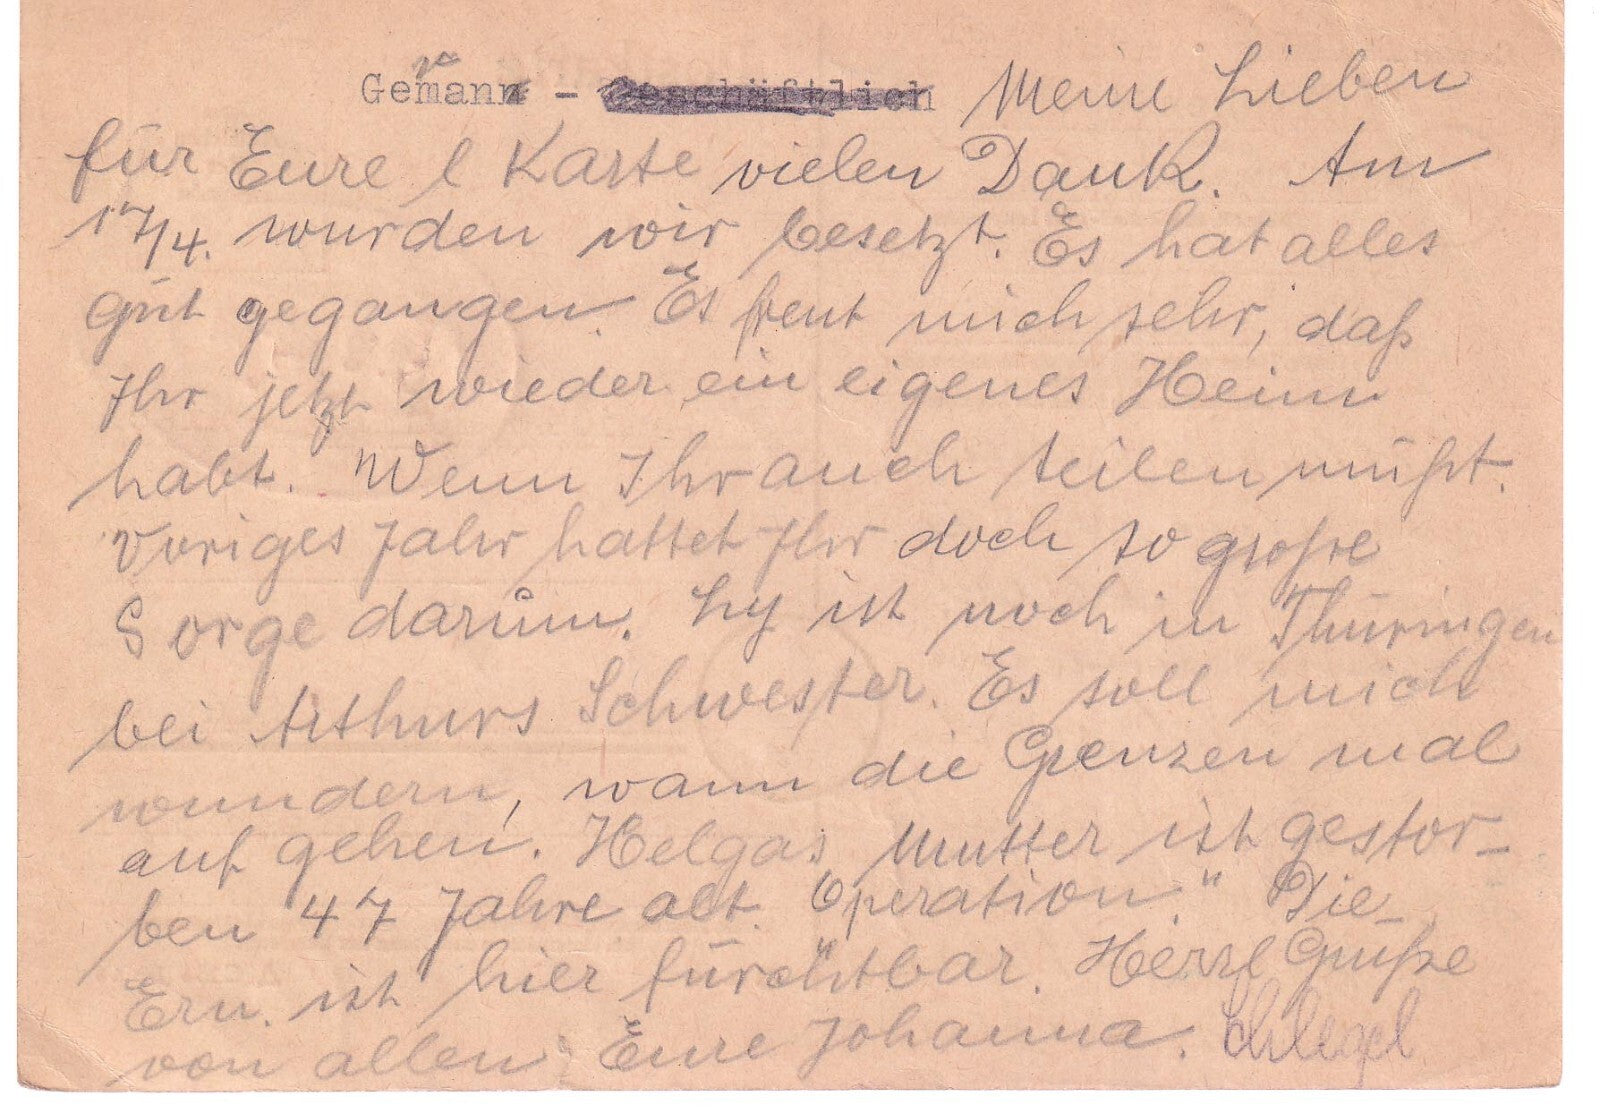 Gemann - Geschäftlich Meine Lieben
für Eure l Karte vielen Dank. Am
17/4. wurden wir besetzt. Es hat alles
gut gegangen. Es freut mich sehr, daß
Ihr jetzt wieder ein eigenes Heim
habt. Wenn Ihr auch teilen müßt.
Voriges Jahr hattet Ihr doch so große
Sorge darum. Ly ist noch in Thüringen
bei Arthurs Schwester. Es soll mich
wundern, wann die Grenzen mal
auf gehen. Helgas Mutter ist gestor-
ben 47 Jahre alt. "Operation." Die
Ern. ist hier fürchtbar. Herzl Grüße
von allen Eure Johanna.